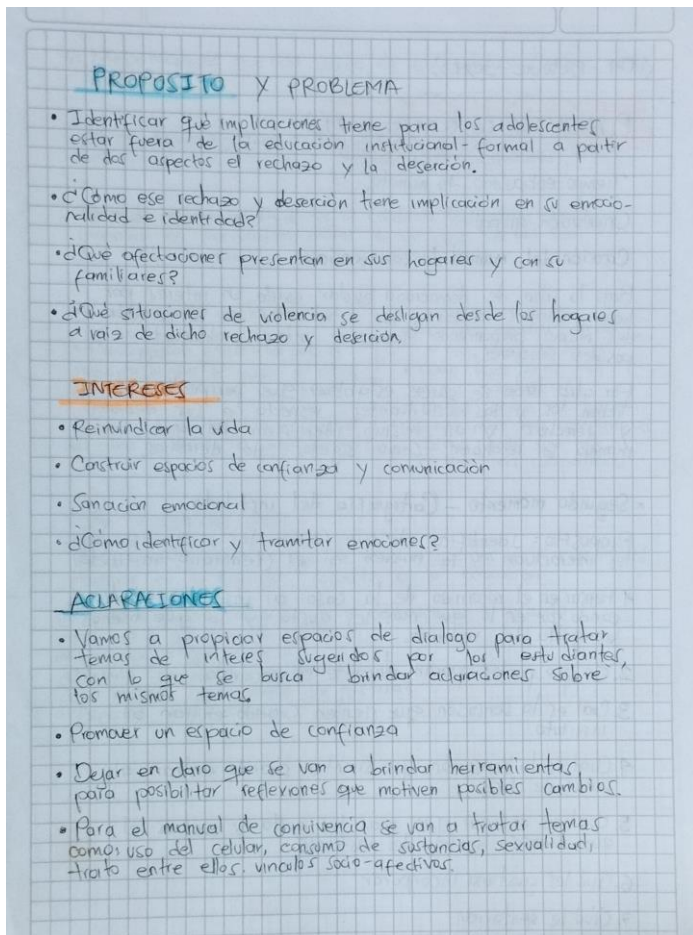 PROPOSITO Y PROBLEMA
• Identificar qué implicaciones tiene para los adolescentes
estar fuera de la educación institucional-formal a partir
de dos aspectos el rechazo y la deserción.
• ¿Cómo ese rechazo y deserción tiene implicación en su emocio-
nalidad e identidad?
• ¿Qué afectaciones presentan en sus hogares y con su
familiares?
• ¿Qué situaciones de violencia se desligan desde los hogares
a raiz de dicho rechazo y deserción.
INTERESES
• Reinvindicar la vida
• Construir espacios de confianza y comunicación
• Sanación emocional
• ¿Cómo identificar y tramitar emociones?
ACLARACIONES
• Vamos a propiciar espacios de dialogo para tratar
temas de interes sugeridos por los estudiantes,
con lo que se busca brindar aclaraciones sobre
los mismos temas.
• Promover un espacio de confianza
• Dejar en claro que se van a brindar herramientas
para posibilitar reflexiones que motiven posibles cambios.
• Para el manual de convivencia se van a tratar temas
como: uso del celular, consumo de sustancias, sexualidad,
trato entre ellos, vinculos socio-afectivos.